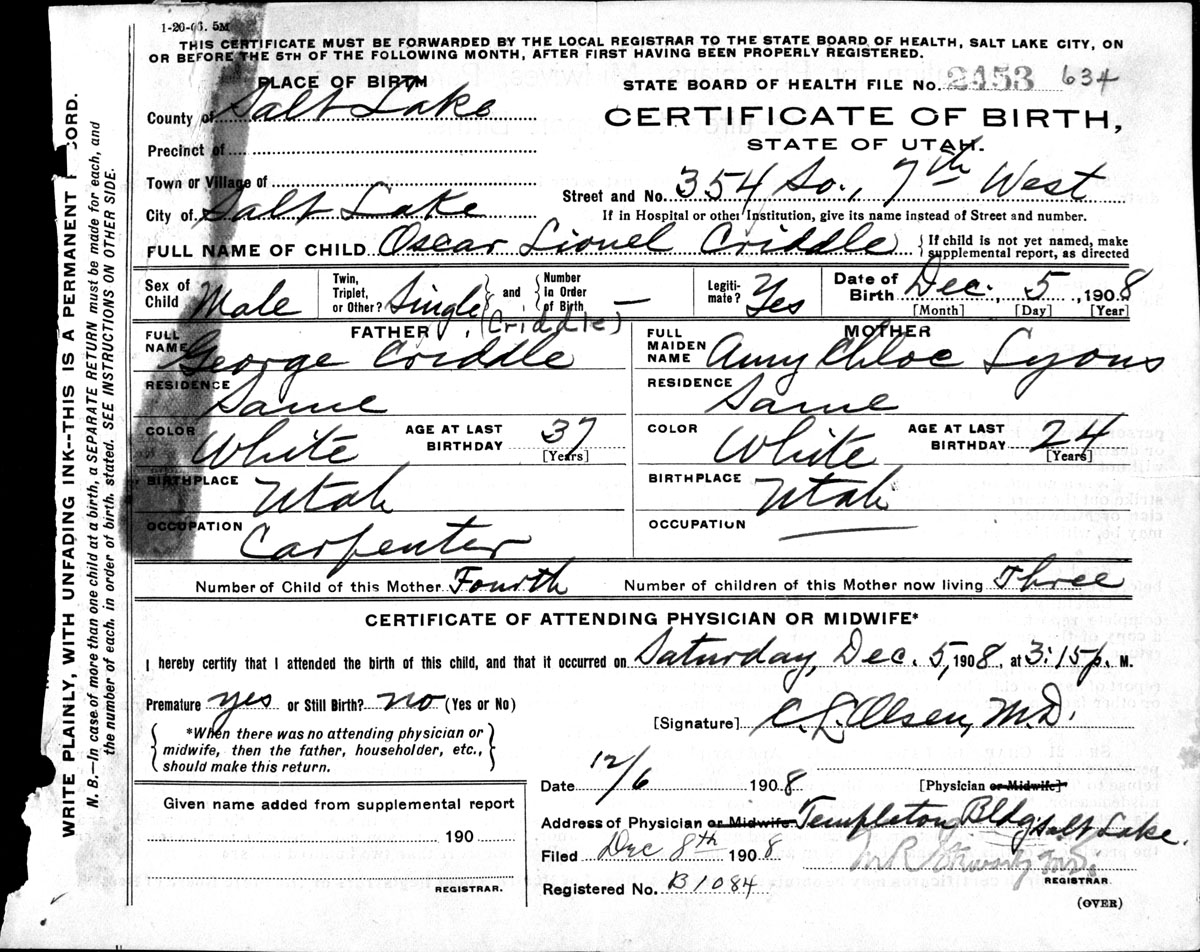 1-20-06. 5M
THIS CERTIFICATE MUST BE FORWARDED BY THE LOCAL REGISTRAR TO THE STATE BOARD OF HEALTH, SALT LAKE CITY, ON
OR BEFORE THE 5TH OF THE FOLLOWING MONTH, AFTER FIRST HAVING BEEN PROPERLY REGISTERED.
PLACE OF BIRTH
STATE BOARD OF HEALTH FILE No. 2453 634
County of Salt Lake
CERTIFICATE OF BIRTH,
STATE OF UTAH.
Precinct of
Town or Village of
Street and No. 354 So., 7th West
City of Salt Lake
If in Hospital or other Institution, give its name instead of Street and number.
FULL NAME OF CHILD Oscar Lionel Criddle { If child is not yet named, make supplemental report, as directed
Sex of Child Male
Twin, Triplet, or Other? Single } and { Number in Order of Birth —
Legitimate? Yes
Date of Birth Dec. 5, 1908
[Month] [Day] [Year]
FATHER (Criddle)
FULL NAME George Criddle
RESIDENCE Same
COLOR White AGE AT LAST BIRTHDAY 37 [Years]
BIRTHPLACE Utah
OCCUPATION Carpenter
MOTHER
FULL MAIDEN NAME Amy Chloe Lyons
RESIDENCE Same
COLOR White AGE AT LAST BIRTHDAY 24 [Years]
BIRTHPLACE Utah
OCCUPATION —
Number of Child of this Mother Fourth Number of children of this Mother now living Three
CERTIFICATE OF ATTENDING PHYSICIAN OR MIDWIFE*
I hereby certify that I attended the birth of this child, and that it occurred on Saturday, Dec. 5, 1908, at 3:15 p. M.
Premature yes or Still Birth? no (Yes or No)
[Signature] C. L. Olsen, M.D.
{ *When there was no attending physician or
midwife, then the father, householder, etc.,
should make this return. }
Date 12/6 1908 [Physician or Midwife]
Given name added from supplemental report
190
REGISTRAR.
Address of Physician or Midwife Templeton Bldg Salt Lake.
Filed Dec 8th 1908
REGISTRAR
Registered No. B1084
(OVER)
WRITE PLAINLY, WITH UNFADING INK--THIS IS A PERMANENT RECORD.
N. B.—In case of more than one child at a birth, a SEPARATE RETURN must be made for each, and
the number of each, in order of birth, stated. SEE INSTRUCTIONS ON OTHER SIDE.